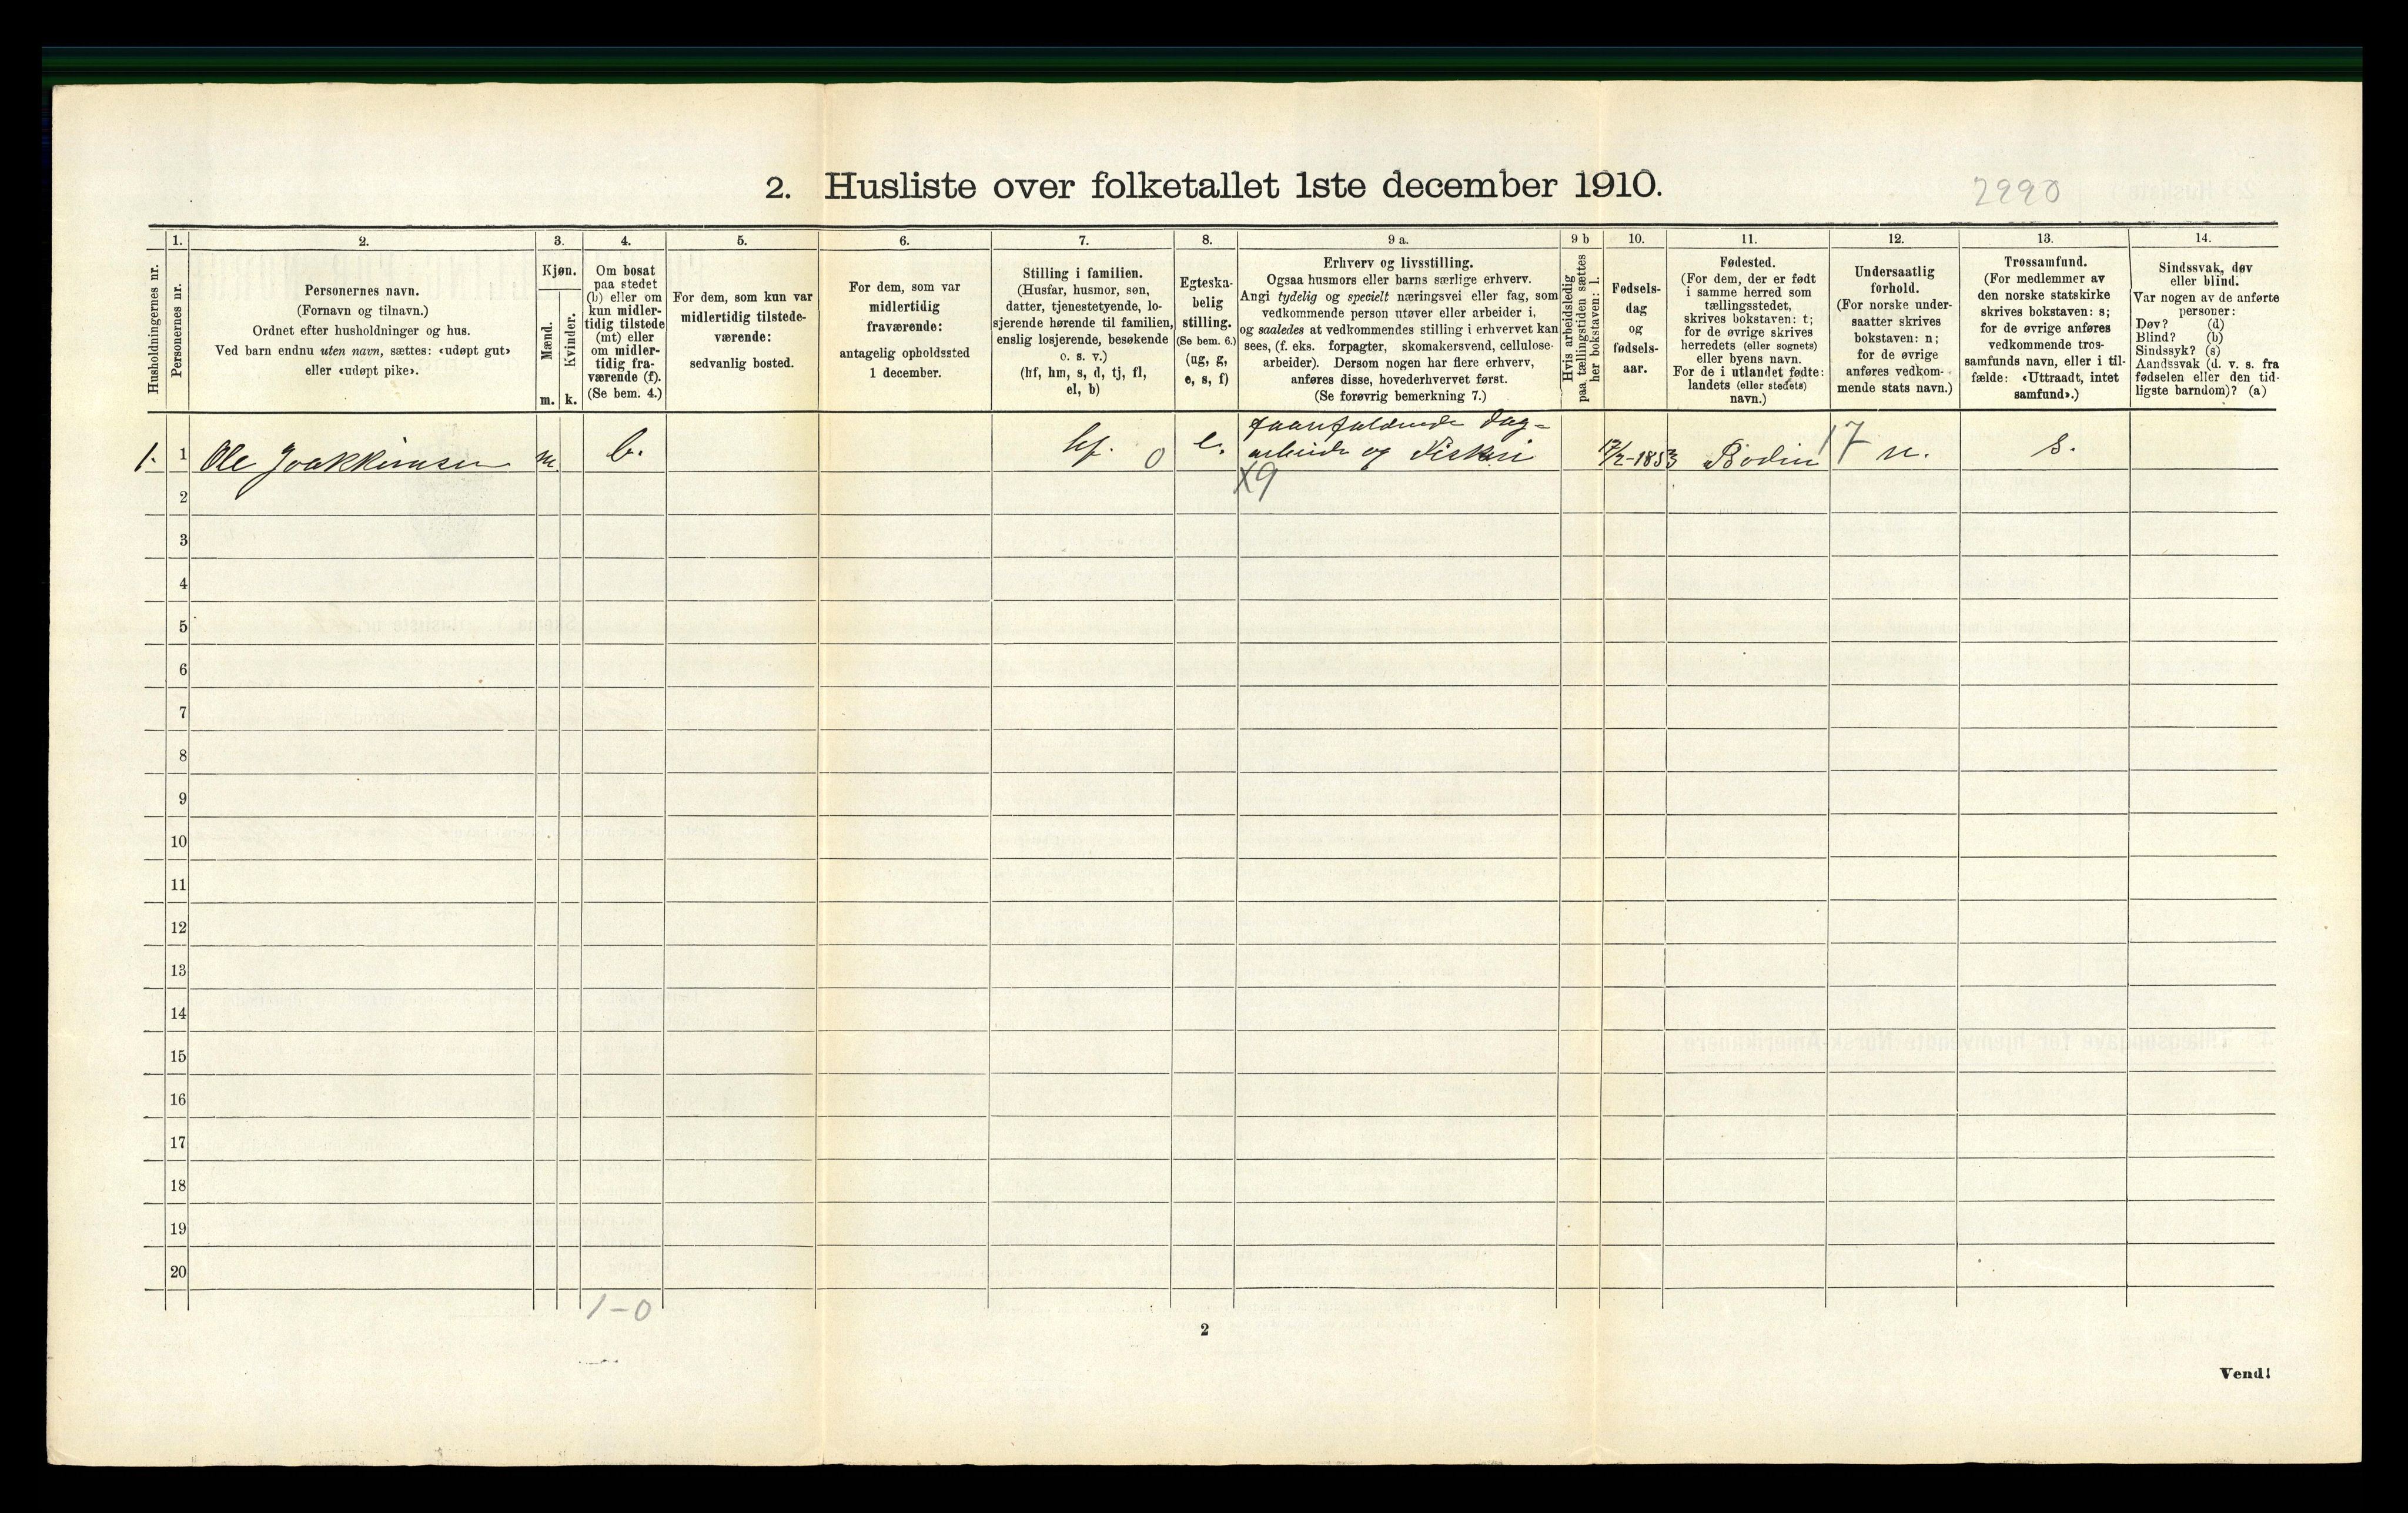 2. Husliste over folketallet 1ste december 1910.
2990
Husholdningernes nr.
1.
Personernes nr.
2.
Personernes navn.
(Fornavn og tilnavn.)
Ordnet efter husholdninger og hus.
Ved barn endnu uten navn, sættes: «udøpt gut»
eller «udøpt pike».
3.
Kjøn.
Mænd.
Kvinder.
m. k.
4.
Om bosat
paa stedet
(b) eller om
kun midler-
tidig tilstede
(mt) eller
om midler-
tidig fra-
værende (f).
(Se bem. 4.)
5.
For dem, som kun var
midlertidig tilstede-
værende:
sedvanlig bosted.
6.
For dem, som var
midlertidig
fraværende:
antagelig opholdssted
1 december.
7.
Stilling i familien.
(Husfar, husmor, søn,
datter, tjenestetyende, lo-
sjerende hørende til familien,
enslig losjerende, besøkende
o. s. v.)
(hf, hm, s, d, tj, fl,
el, b)
8.
Egteska-
belig
stilling.
(Se bem. 6.)
(ug, g,
e, s, f)
9 a.
Erhverv og livsstilling.
Ogsaa husmors eller barns særlige erhverv.
Angi tydelig og specielt næringsvei eller fag, som
vedkommende person utøver eller arbeider i,
og saaledes at vedkommendes stilling i erhvervet kan
sees, (f. eks. forpagter, skomakersvend, cellulose-
arbeider). Dersom nogen har flere erhverv,
anføres disse, hovederhvervet først.
(Se forøvrig bemerkning 7.)
9 b
Hvis arbeidsledig
paa tællingstiden sættes
her bokstaven: l.
10.
Fødsels-
dag
og
fødsels-
aar.
11.
Fødested.
(For dem, der er født
i samme herred som
tællingsstedet,
skrives bokstaven: t;
for de øvrige skrives
herredets (eller sognets)
eller byens navn.
For de i utlandet fødte:
landets (eller stedets)
navn.)
12.
Undersaatlig
forhold.
(For norske under-
saatter skrives
bokstaven: n;
for de øvrige
anføres vedkom-
mende stats navn.)
13.
Trossamfund.
(For medlemmer av
den norske statskirke
skrives bokstaven: s;
for de øvrige anføres
vedkommende tros-
samfunds navn, eller i til-
fælde: «Uttraadt, intet
samfund».)
14.
Sindssvak, døv
eller blind.
Var nogen av de anførte
personer:
Døv? (d)
Blind? (b)
Sindssyk? (s)
Aandssvak (d. v. s. fra
fødselen eller den tid-
ligste barndom)? (a)
1. 1 Ole Joakkimsen m b. hf. 0 e.
dag-
arbeide og Fiskeri
X9
17/2-1853 Bodin 17 n. s.
2
3
4
5
6
7
8
9
10
11
12
13
14
15
16
17
18
19
20
1-0
2
Vend!